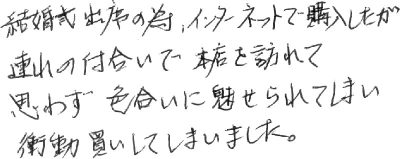 結婚式出席の為、インターネットで購入したが
連れの付合いで本店を訪れて
思わず色合いに魅せられてしまい
衝動買いしてしまいました。